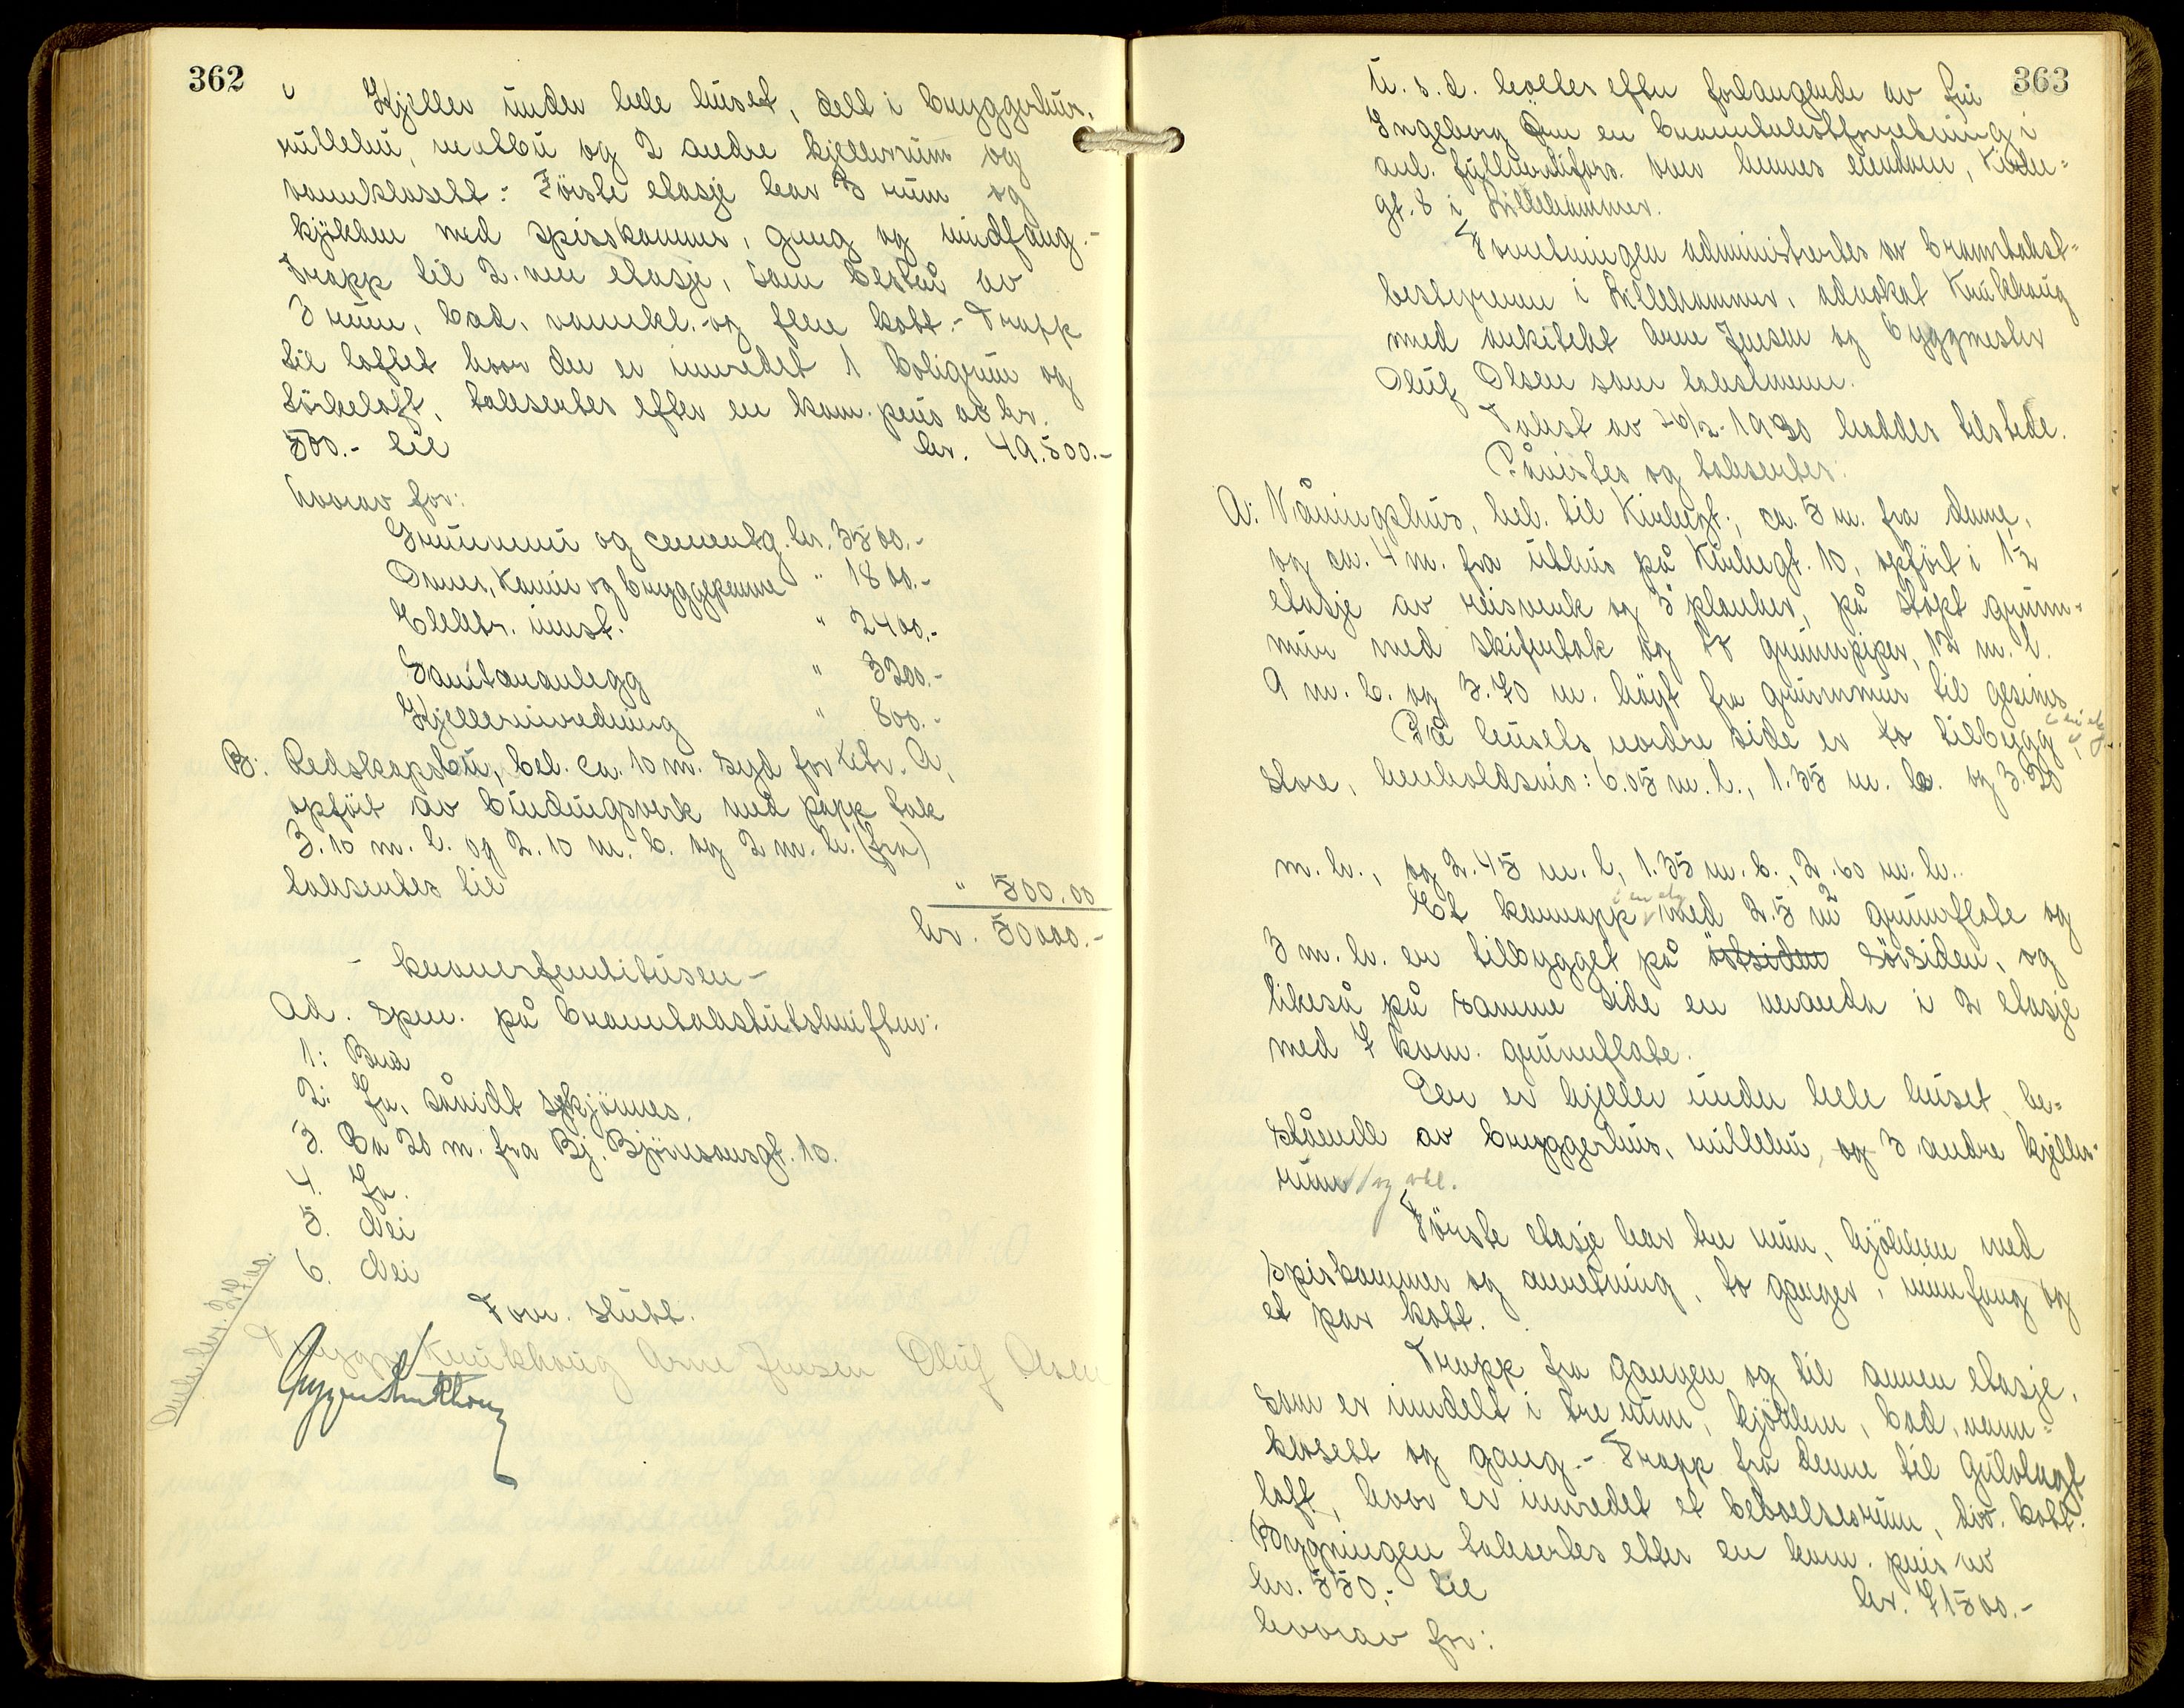 362
Kjeller under hele huset, delt i bryggerhus,
rullebu, matbu og 2 andre kjellerrum og
vannklosett: Förste etasje har 3 rum og
kjökken med spisskammer, gang og vindfang.-
Trapp til 2. nen etasje, som består av
3 rum, bad, vannkl.-og flere kott.- Trapp
til loftet hvor der er innredet 1 boligrum og
törkeloft, takseres efter en kvm. pris av kr.
500.- til kr. 49.500.-
hvorav for:
Grunnmur og cementg. kr. 3500.-
Ovner, Kamin og bryggepanne " 1800.-
Elektr. innst. " 2400.-
Sanitæranlegg " 3200.-
Kjellerinnredning " 800.-
B: Redskapsbu, bel. ca. 10 m. syd for litr. A,
opfört av bindingsverk med papp tak
3.10 m. l. og 2.10 m. b. og 2 m. h. (fra)
takseres til " 500.00
kr. 50000.-
- kronerfemtitusen -
Ad. spm. på branntakstutskriften:
1: Bra
2: Ja, såvidt skjönnes.
3. Ca 20 m. fra Bj. Björnsonsgt. 10.
4. Ja.
5. Nei
6. Nei
Forr. slutt.
Trygve Krukhaug Arne Jensen Oluf Olsen
363
U. s. d. holtes efter forlangende av fru
Ingeborg en branntakstforretning i
anl. fullverdifors. over hennes eiendom, Kirke-
gt. 8 i Lillehammer.
Forretningen administrertes av branntakst-
bestyreren i Lillehammer, advokat Krukhaug
med arkitekt Arne Jensen og byggmester
Oluf Olsen som takstmenn.
Takst av 26/2-1930 hadde tilstede.
Påvistes og takseres:
A: Våningshus, bel. til Kirkegt., ca. 5 m. fra denne,
og ca. 4 m. fra uthus på Kirkegt. 10, opfört i 1½
etasje av reisverk og 3" planker, på stöpt grunn-
mur med skifertak og grunnpiper, 12 m. l.
9 m. b. og 3.70 m. höyt fra grunnmur til gesims
På husets nordre side er to tilbygg
store, henholdsvis: 6.05 m. l., 1.35 m. b. og 3.20
m. h., og 2.45 m. l, 1.35 m. b., 2.60 m. h..
Et karnapp med 2.5 m² grunnflate og
3 m. h. er tilbygget på östsiden sörsiden, og
likeså på samme side en veranda i 2 etasje
med 7 kvm. grunnflate.
Der er kjeller under hele huset, be-
stående av bryggerhus, rullebu, og 3 andre kjeller-
rum // og vkl.
Förste etasje har tre rum, kjökken med
spiskammer og anretning, to ganger, vinnfang og
et par kott.
Trapp fra gangen og til annen etasje,
som er inndelt i tre rum, kjökken, bad, vann-
klosett og gang.- Trapp fra denne til gulvlagt
loft, hvor er innredet et beboelsesrum, div. kott.
Bygningen takseres etter en kvm. pris av
kr. 550,- til kr. 71500.-
hvorav for: